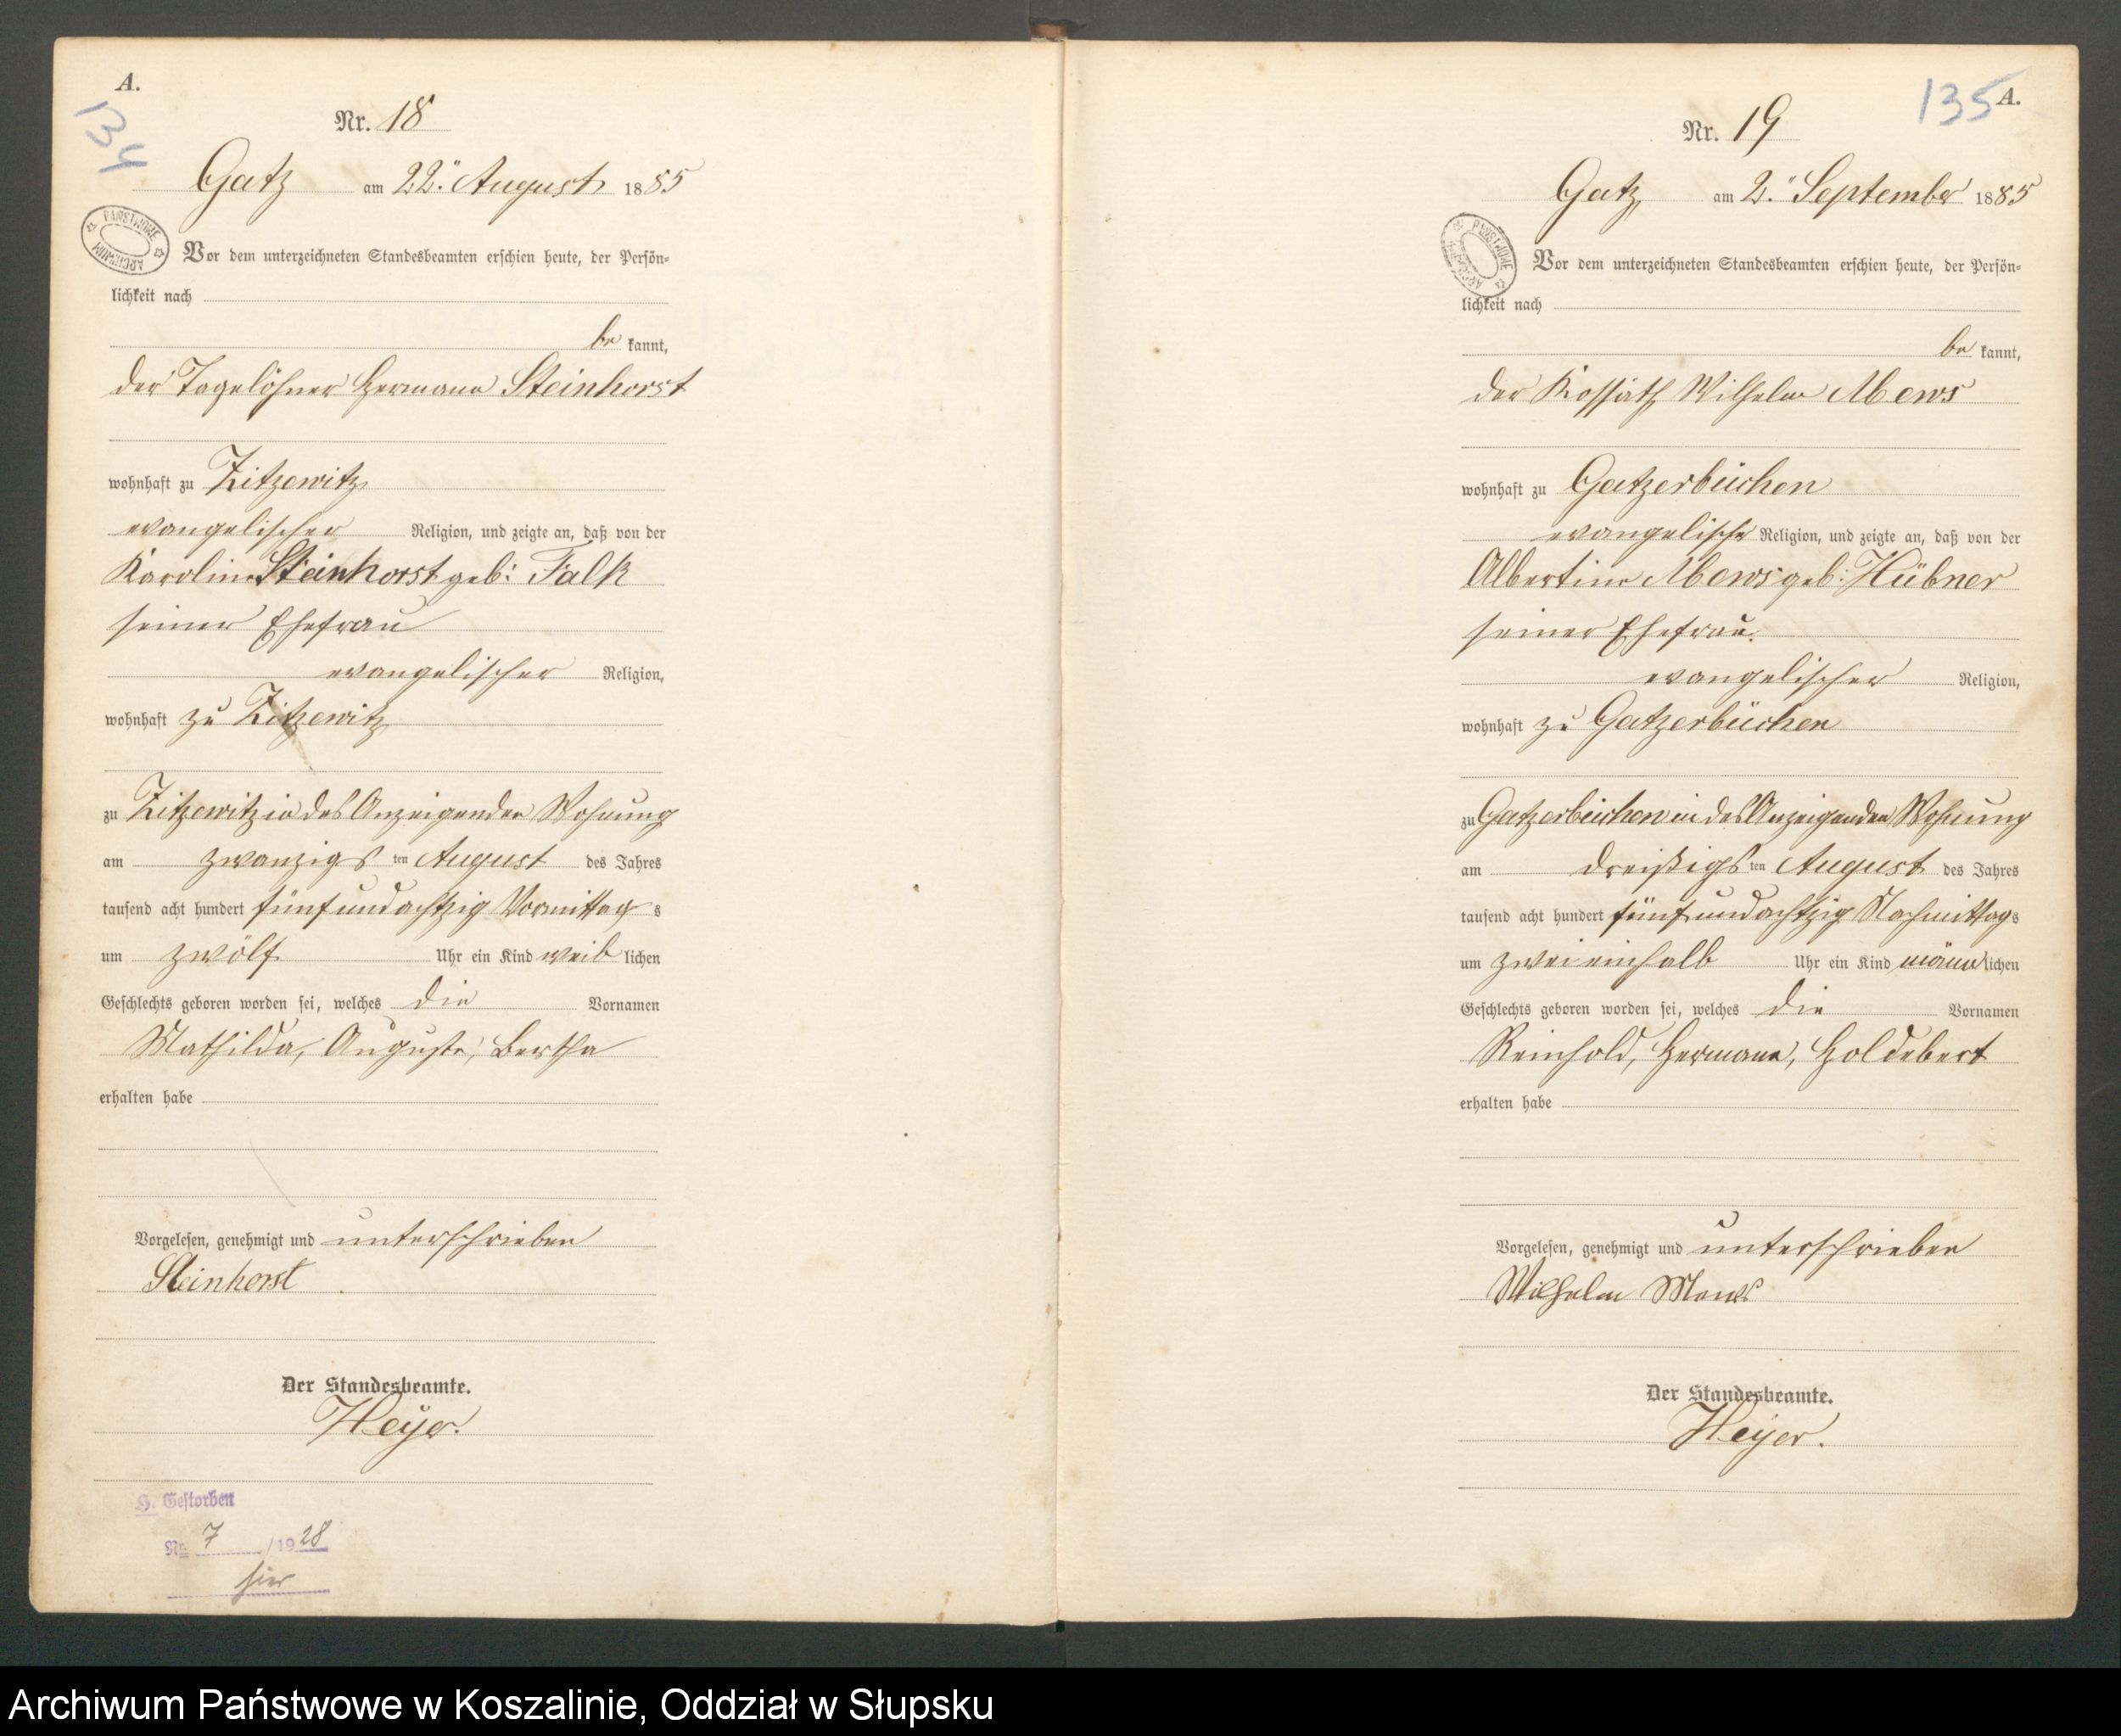 A.
134
Nr. 18
Gatz am 22. August 1885
PAŃSTWOWE ARCHIWUM
Vor dem unterzeichneten Standesbeamten erschien heute, der Persön-
lichkeit nach
be kannt,
der Tagelöhner Hermann Steinhorst
wohnhaft zu Zitzewitz
evangelischer Religion, und zeigte an, daß von der
Karoline Steinhorst geb: Falk
seiner Ehefrau
evangelischer Religion,
wohnhaft zu Zitzewitz
zu Zitzewitz in des Anzeigenden Wohnung
am zwanzigs ten August des Jahres
tausend acht hundert fünfundachtzig Vormittag s
um zwölf Uhr ein Kind weib lichen
Geschlechts geboren worden sei, welches die Vornamen
Mathilda, Auguste, Bertha
erhalten habe
Vorgelesen, genehmigt und unterschrieben
Steinhorst
Der Standesbeamte.
Heyer.
H. Gestorben
Nr. 7 /1928
hier
135
A.
Nr. 19
Gatz, am 2. September 1885
PAŃSTWOWE ARCHIWUM
Vor dem unterzeichneten Standesbeamten erschien heute, der Persön-
lichkeit nach
be kannt,
der Kossäth Wilhelm Mews
wohnhaft zu Gatzerbücken
evangelische Religion, und zeigte an, daß von der
Albertine Mews geb: Hübner
seiner Ehefrau.
evangelischer Religion,
wohnhaft zu Gatzerbücken
zu Gatzerbücken in des Anzeigenden Wohnung
am dreißigs ten August des Jahres
tausend acht hundert fünfundachtzig Nachmittags
um zwei einhalb Uhr ein Kind männ lichen
Geschlechts geboren worden sei, welches die Vornamen
Reinhold, Hermann, Holdebert
erhalten habe
Vorgelesen, genehmigt und unterschrieben
Wilhelm Mews
Der Standesbeamte.
Heyer.
Archiwum Państwowe w Koszalinie, Oddział w Słupsku